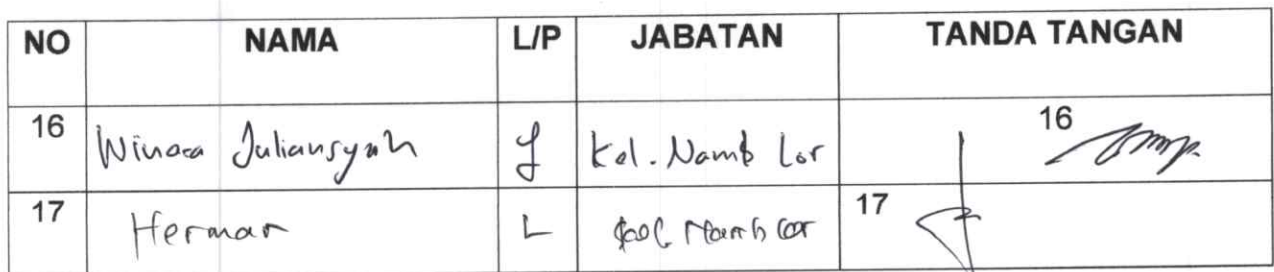 NO NAMA L/P JABATAN TANDA TANGAN
16 Juliansyah L Kel. Namb Lor 16
17 Herman L Kel. Namb Lor 17